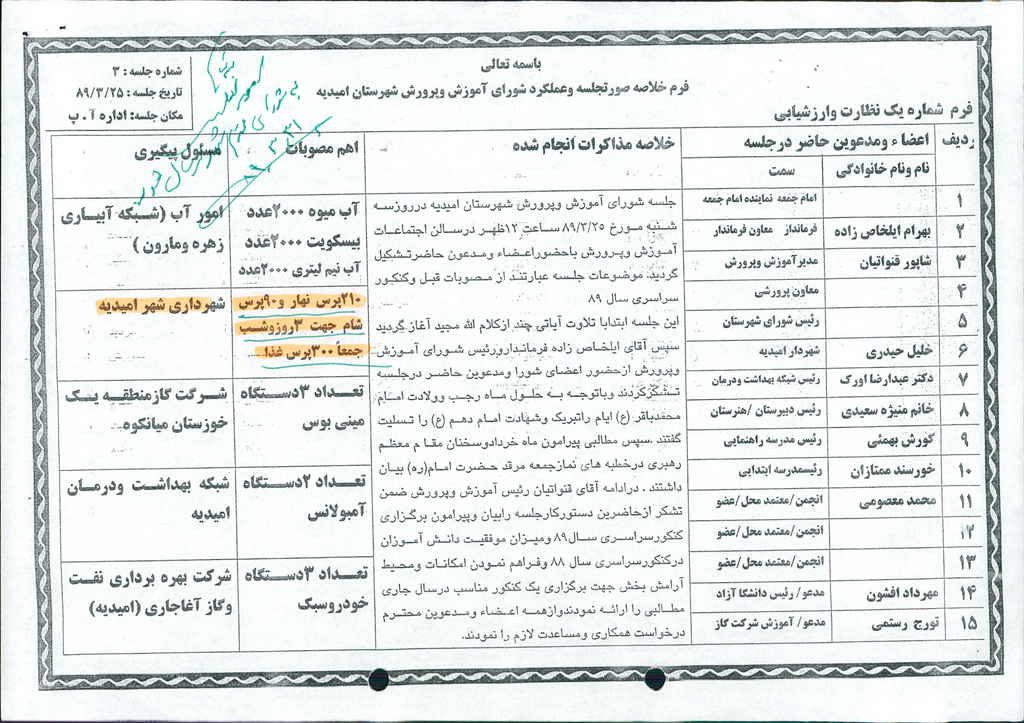 باسمه تعالی
فرم خلاصه صورتجلسه وعملکرد شورای آموزش وپرورش شهرستان امیدیه
شماره جلسه : ۳
تاریخ جلسه : ۸۹/۳/۲۵
مکان جلسه: اداره آ . پ
فرم شماره یک نظارت وارزشیابی
ردیف
اعضاء ومدعوین حاضر درجلسه
نام ونام خانوادگی
سمت
خلاصه مذاکرات انجام شده
اهم مصوبات
مسئول پیگیری
۱ امام جمعه نماینده امام جمعه
۲ بهرام ایلخاص زاده فرماندار معاون فرماندار
۳ شاپور قنواتیان مدیرآموزش وپرورش
۴ معاون پرورشی
۵ رئیس شورای شهرستان
۶ خلیل حیدری شهردار امیدیه
۷ دکتر عبدارضا اورک رئیس شبکه بهداشت ودرمان
۸ خانم منیژه سعیدی رئیس دبیرستان /هنرستان
۹ کورش بهمئی رئیس مدرسه راهنمایی
۱۰ خورسند ممتازان رئیسمدرسه ابتدایی
۱۱ محمد معصومی انجمن/معتمد محل/عضو
۱۲ انجمن/معتمد محل/عضو
۱۳ انجمن/معتمد محل/عضو
۱۴ مهرداد افشون مدعو/ رئیس دانشگا آزاد
۱۵ تورج رستمی مدعو/ آموزش شرکت گاز
جلسه شورای آموزش وپرورش شهرستان امیدیه درروزسه
شنبه مورخ ۸۹/۳/۲۵ ساعت ۱۲ظهر درسالن اجتماعات
آموزش وپرورش باحضوراعضاء ومدعون حاضرتشکیل
گردید. موضوعات جلسه عبارتند از مصوبات قبل وکنکور
سراسری سال ۸۹
این جلسه ابتدابا تلاوت آیاتی چند ازکلام الله مجید آغاز گردید
سپس آقای ایلخاص زاده فرمانداررئیس شورای آموزش
وپرورش ازحضور اعضای شورا ومدعوین حاضر درجلسه
تشکرکردند وباتوجه به حلول ماه رجب وولادت امام
محمدباقر (ع) ایام راتبریک وشهادت امام دهم (ع) را تسلیت
گفتند .سپس مطالبی پیرامون ماه خردادوسخنان مقام معظم
رهبری درخطبه های نمازجمعه مرقد حضرت امام(ره) بیان
داشتند . درادامه آقای قنواتیان رئیس آموزش وپرورش ضمن
تشکر ازحاضرین دستورکارجلسه رابیان وپیرامون برگزاری
کنکورسراسری سال۸۹ ومیزان موفقیت دانش آموزان
درکنکورسراسری سال ۸۸ وفراهم نمودن امکانات ومحیط
آرامش بخش جهت برگزاری یک کنکور مناسب درسال جاری
مطالبی را ارائه نمودندوازهمه اعضاء ومدعوین محترم
درخواست همکاری ومساعدت لازم را نمودند.
آب میوه ۲۰۰۰عدد
بیسکویت ۲۰۰۰عدد
آب نیم لیتری ۲۰۰۰عدد
امور آب (شبکه آبیاری
زهره ومارون )
۲۱۰پرس نهار و۹۰پرس
شام جهت ۳روزوشب
جمعاً ۳۰۰پرس غذا.
شهرداری شهر امیدیه
تعداد ۳دستگاه
مینی بوس
شرکت گازمنطقه یک
خوزستان میانکوه
تعداد ۲دستگاه
آمبولانس
شبکه بهداشت ودرمان
امیدیه
تعداد ۳دستگاه
خودروسبک
شرکت بهره برداری نفت
وگاز آغاجاری (امیدیه)